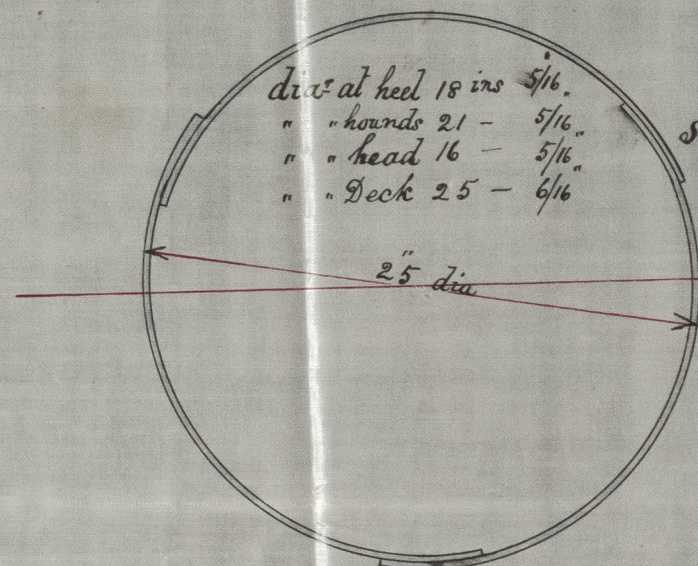 diaʳ at heel 18 ins 5/16"
" " hounds 21 - 5/16"
" " head 16 - 5/16"
" " Deck 25 - 6/16"
25" dia
S